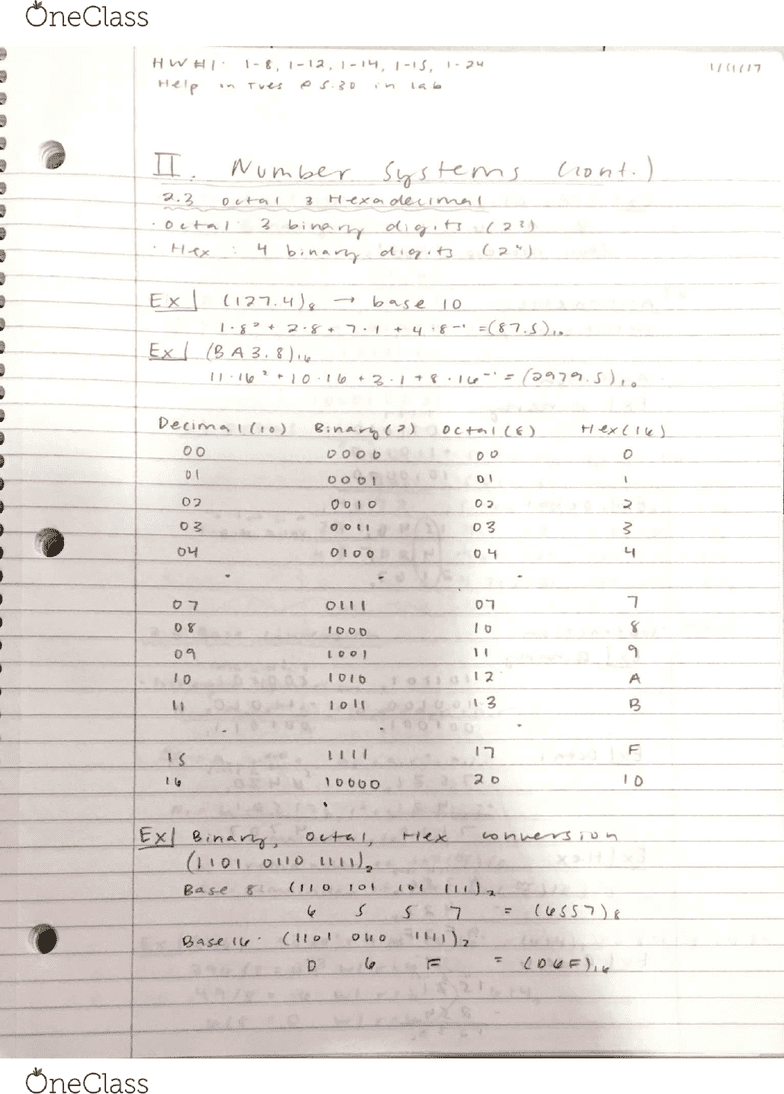 OneClass
HW #1: 1-8, 1-12, 1-14, 1-15, 1-24
Help in Tues @ 5:30 in lab
1/11/17
II. Number Systems (cont.)
2.3 Octal & Hexadecimal
· Octal: 3 binary digits (2³)
· Hex : 4 binary digits (2⁴)
Ex| (127.4)₈ → base 10
1·8² + 2·8 + 7·1 + 4·8⁻¹ = (87.5)₁₀
Ex| (BA3.8)₁₆
11·16² + 10·16 + 3·1 + 8·16⁻¹ = (2979.5)₁₀
Decimal(10) Binary(2) Octal(8) Hex(16)
00 0000 00 0
01 0001 01 1
02 0010 02 2
03 0011 03 3
04 0100 04 4
· · ·
07 0111 07 7
08 1000 10 8
09 1001 11 9
10 1010 12 A
11 1011 13 B
· · ·
15 1111 17 F
16 10000 20 10
Ex| Binary, Octal, Hex conversion
(1101 0110 1111)₂
Base 8 (110 101 101 111)₂
6 5 5 7 = (6557)₈
Base 16: (1101 0110 1111)₂
D 6 F = (D6F)₁₆
OneClass